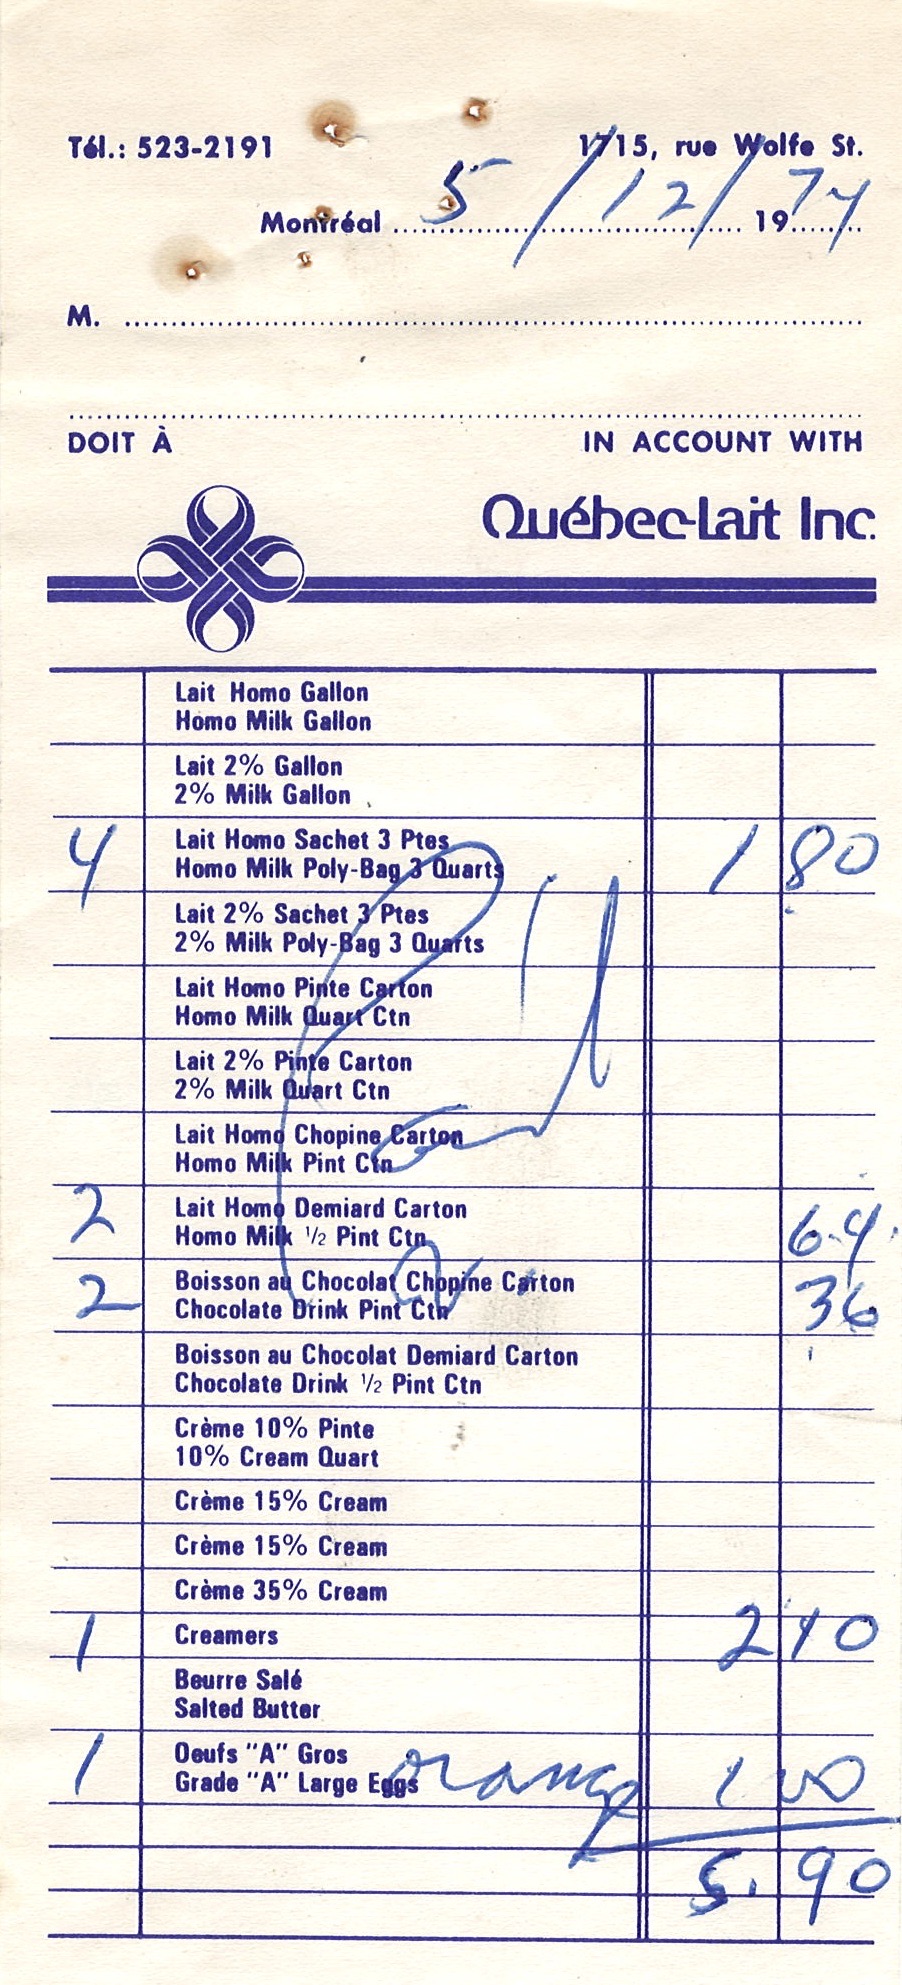 Tél.: 523-2191 1715, rue Wolfe St.
Montréal 5/12/ 1974
M.
DOIT À IN ACCOUNT WITH
Québec-Lait Inc.
Lait Homo Gallon
Homo Milk Gallon
Lait 2% Gallon
2% Milk Gallon
4 Lait Homo Sachet 3 Ptes 1 80
Homo Milk Poly-Bag 3 Quarts
Lait 2% Sachet 3 Ptes
2% Milk Poly-Bag 3 Quarts
Lait Homo Pinte Carton
Homo Milk Quart Ctn
Paid
Lait 2% Pinte Carton
2% Milk Quart Ctn
Lait Homo Chopine Carton
Homo Milk Pint Ctn
2 Lait Homo Demiard Carton 64
Homo Milk ½ Pint Ctn
2 Boisson au Chocolat Chopine Carton 36
Chocolate Drink Pint Ctn
Boisson au Chocolat Demiard Carton
Chocolate Drink ½ Pint Ctn
Crème 10% Pinte
10% Cream Quart
Crème 15% Cream
Crème 15% Cream
Crème 35% Cream
1 Creamers 2 10
Beurre Salé
Salted Butter
1 Oeufs "A" Gros orange 1 00
Grade "A" Large Eggs
5.90